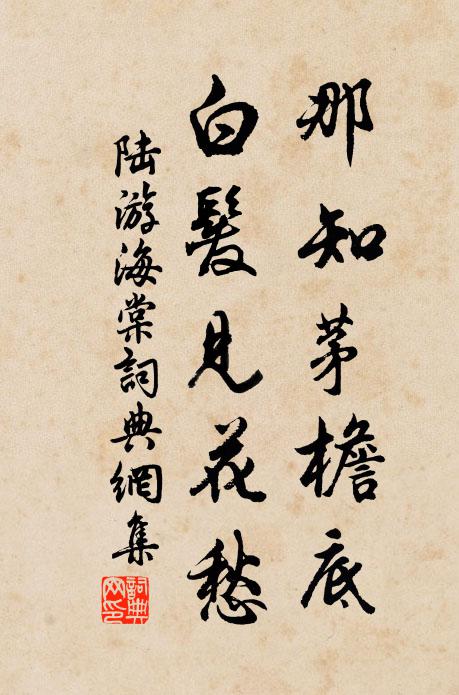 那知茅檐底
白髮見花愁
陆游海棠詞典網集
詞典